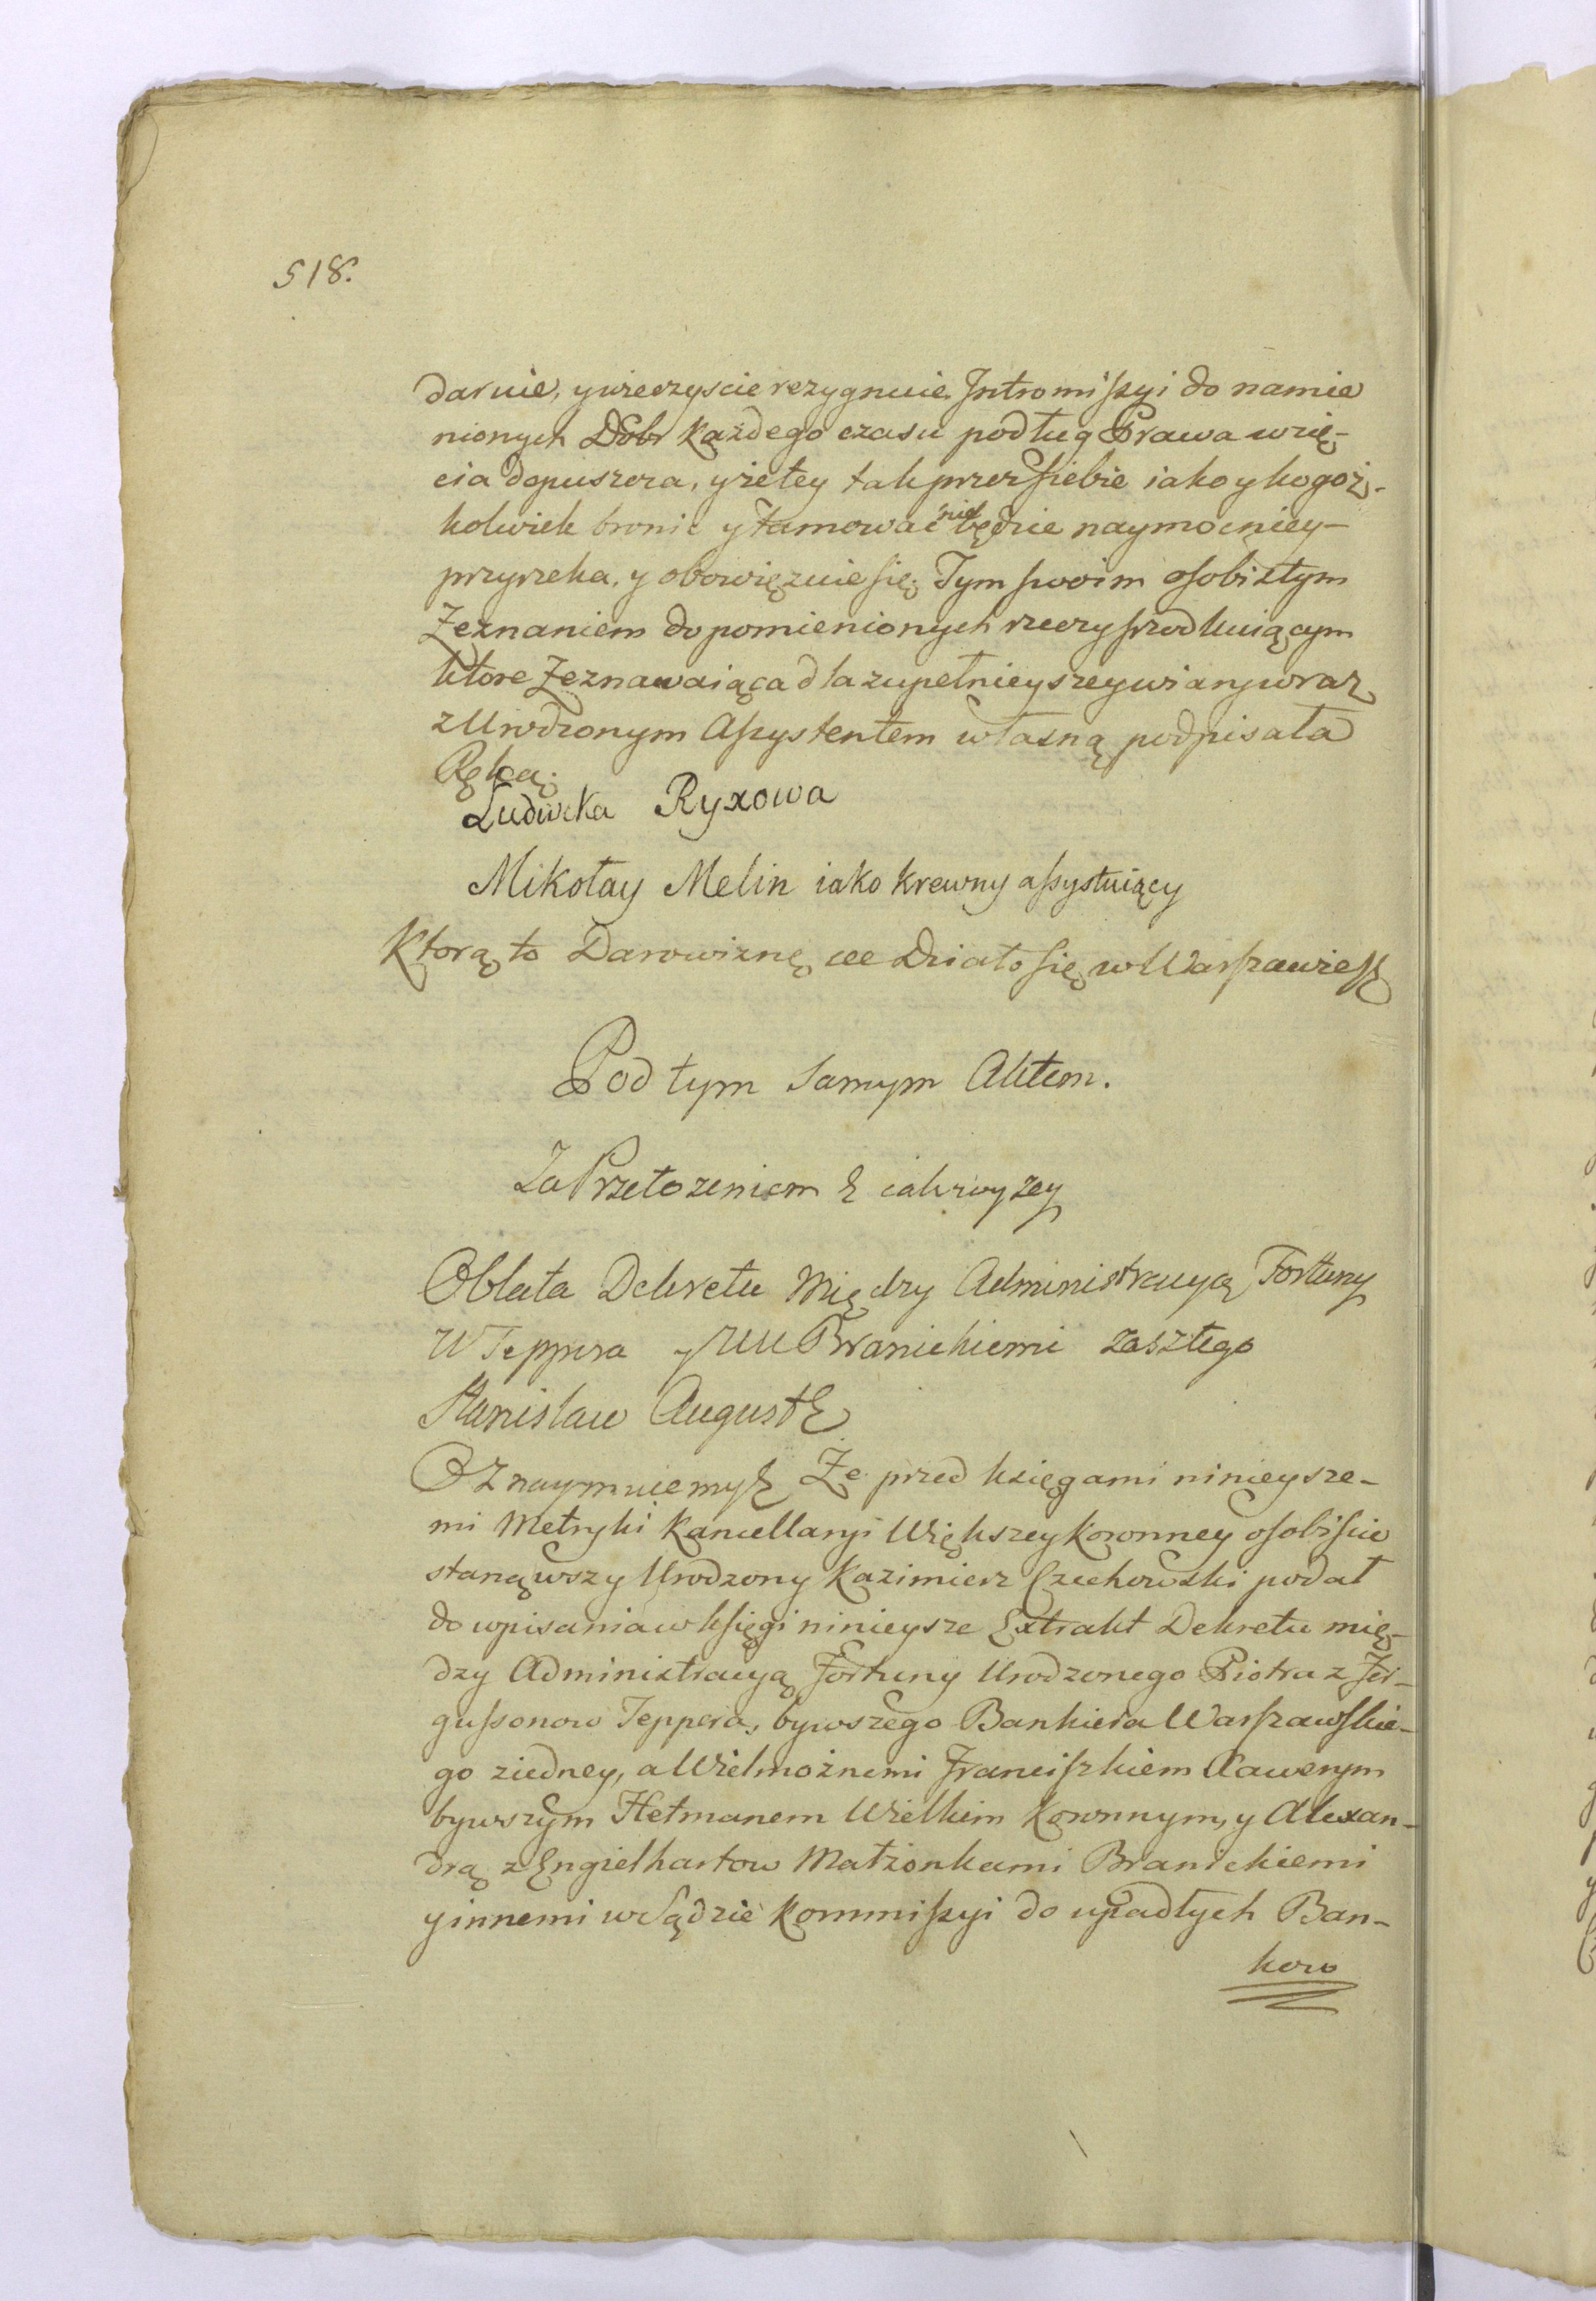 518.
daruie, y wieczyscie rezygnuie. Intromissyi do namie
nionych Dobr każdego czasu podług Prawa wzię-
cia dopuszcza, y żetey tak przez siebie iako y kogoż-
kolwiek bronic y tamować nie będzie naymocniey-
przyrzeka, y obowięzuie się. Tym swoim osobistym
Zeznaniem do pomienionych rzeczy srzodkuiącym
ktore Zeznawaiąca dla zupełnieyszey wiary wraz
z Urodzonym Assystentem własną podpisała
Ręką.
Ludwika Ryxowa
Mikołay Melin iako krewny assystuiący
Ktorą to Darowiznę &c Działo się w Warszawie &
Pod tym samym Aktem.
Za Przełozeniem & iak wyzey
Oblata Dekretu Między Administracyą Fortuny
W Teppera y WW Branickiemi zaszłego
Stanislaw August &
Oznaymuiemy & Że przed księgami ninieysze-
mi Metryki Kancellaryi Większey Koronney osobiscie
stanąwszy Urodzony Kazimierz Czechowski podał
do wpisania w księgi ninieysze Extrakt Dekretu mię-
dzy Administracyą Fortuny Urodzonego Piotra z Fer-
gussonow Teppera, bywszego Bankiera Warszawskie-
go ziedney, a Wielmożnemi Franciszkiem Xawerym
bywszym Hetmanem Wielkim Koronnym, y Alexan-
drą z Engielhartow Małżonkami Branickiemi
y innemi w Sądzie Kommissyi do upadłych Ban-
kow